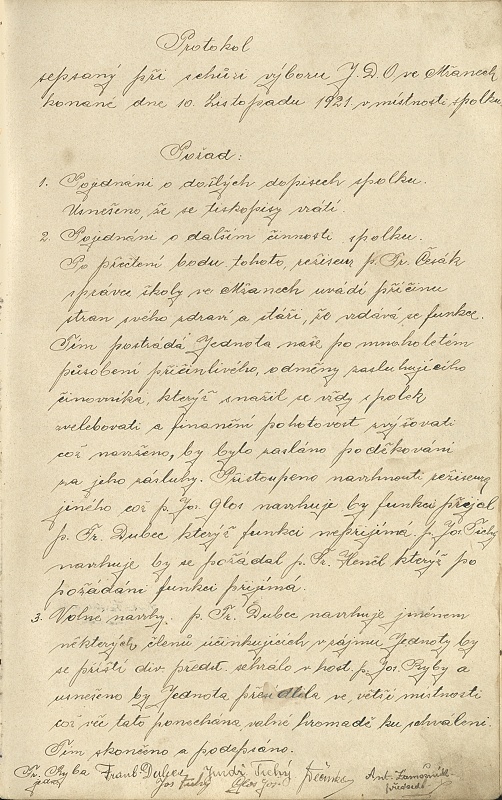 Protokol
sepsaný při schůzi výboru J. D. O ve Mžanech
konané dne 10. listopadu 1921 v místnosti spolku
Pořad:
1. Pojednáni o došlých dopisech spolku.
Usnešeno, že se tiskopisy vrátí.
2. Pojednáni o dalším činnosti spolku.
Po přečtení bodu tohoto, režiseur p. Fr. Česák
správce školy ve Mžanech uvádí příčinu
stran svého zdraví a stáři, že vzdává se funkce.
Tím postrádá Jednota naše po mnoholetém
působeni přičinlivého, odměny zasluhujícího
činovníka, kterýž snažil se vždy spolek
zvelebovati a finanční pohotovost zvyšovati
což navrženo, by bylo zasláno poděkováni
za jeho zásluhy. Přistoupeno navrhnouti režiseura
jiného což p. Jos. Glos navrhuje by funkci přejal
p. Fr. Dubec kterýž funkci nepřijímá. p. Jos. Tichý
navrhuje by se požádal p. Fr. Henčl kterýž po
požádáni funkci přijímá.
3. Volné navrhy. p. Fr. Dubec navrhuje jmenem
některých členů účinkujících v zájmu Jednoty by
se příští div. předst. sehrálo v host. p. Jos. Ryby a
usnešeno by Jednota ve větší místnosti
což věc tato ponechána valné hromadě ku schváleni.
Tím skončeno a podepsáno.
Fr. Ryba Frant. Dubec Jindř. Tichý Ant.
jedn. Jos Tichý Glos Jos. předseda